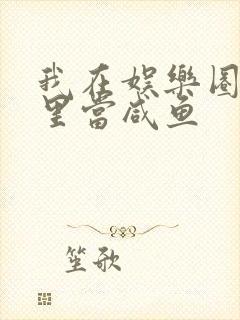 我在娱樂圈
里當咸鱼
笙歌